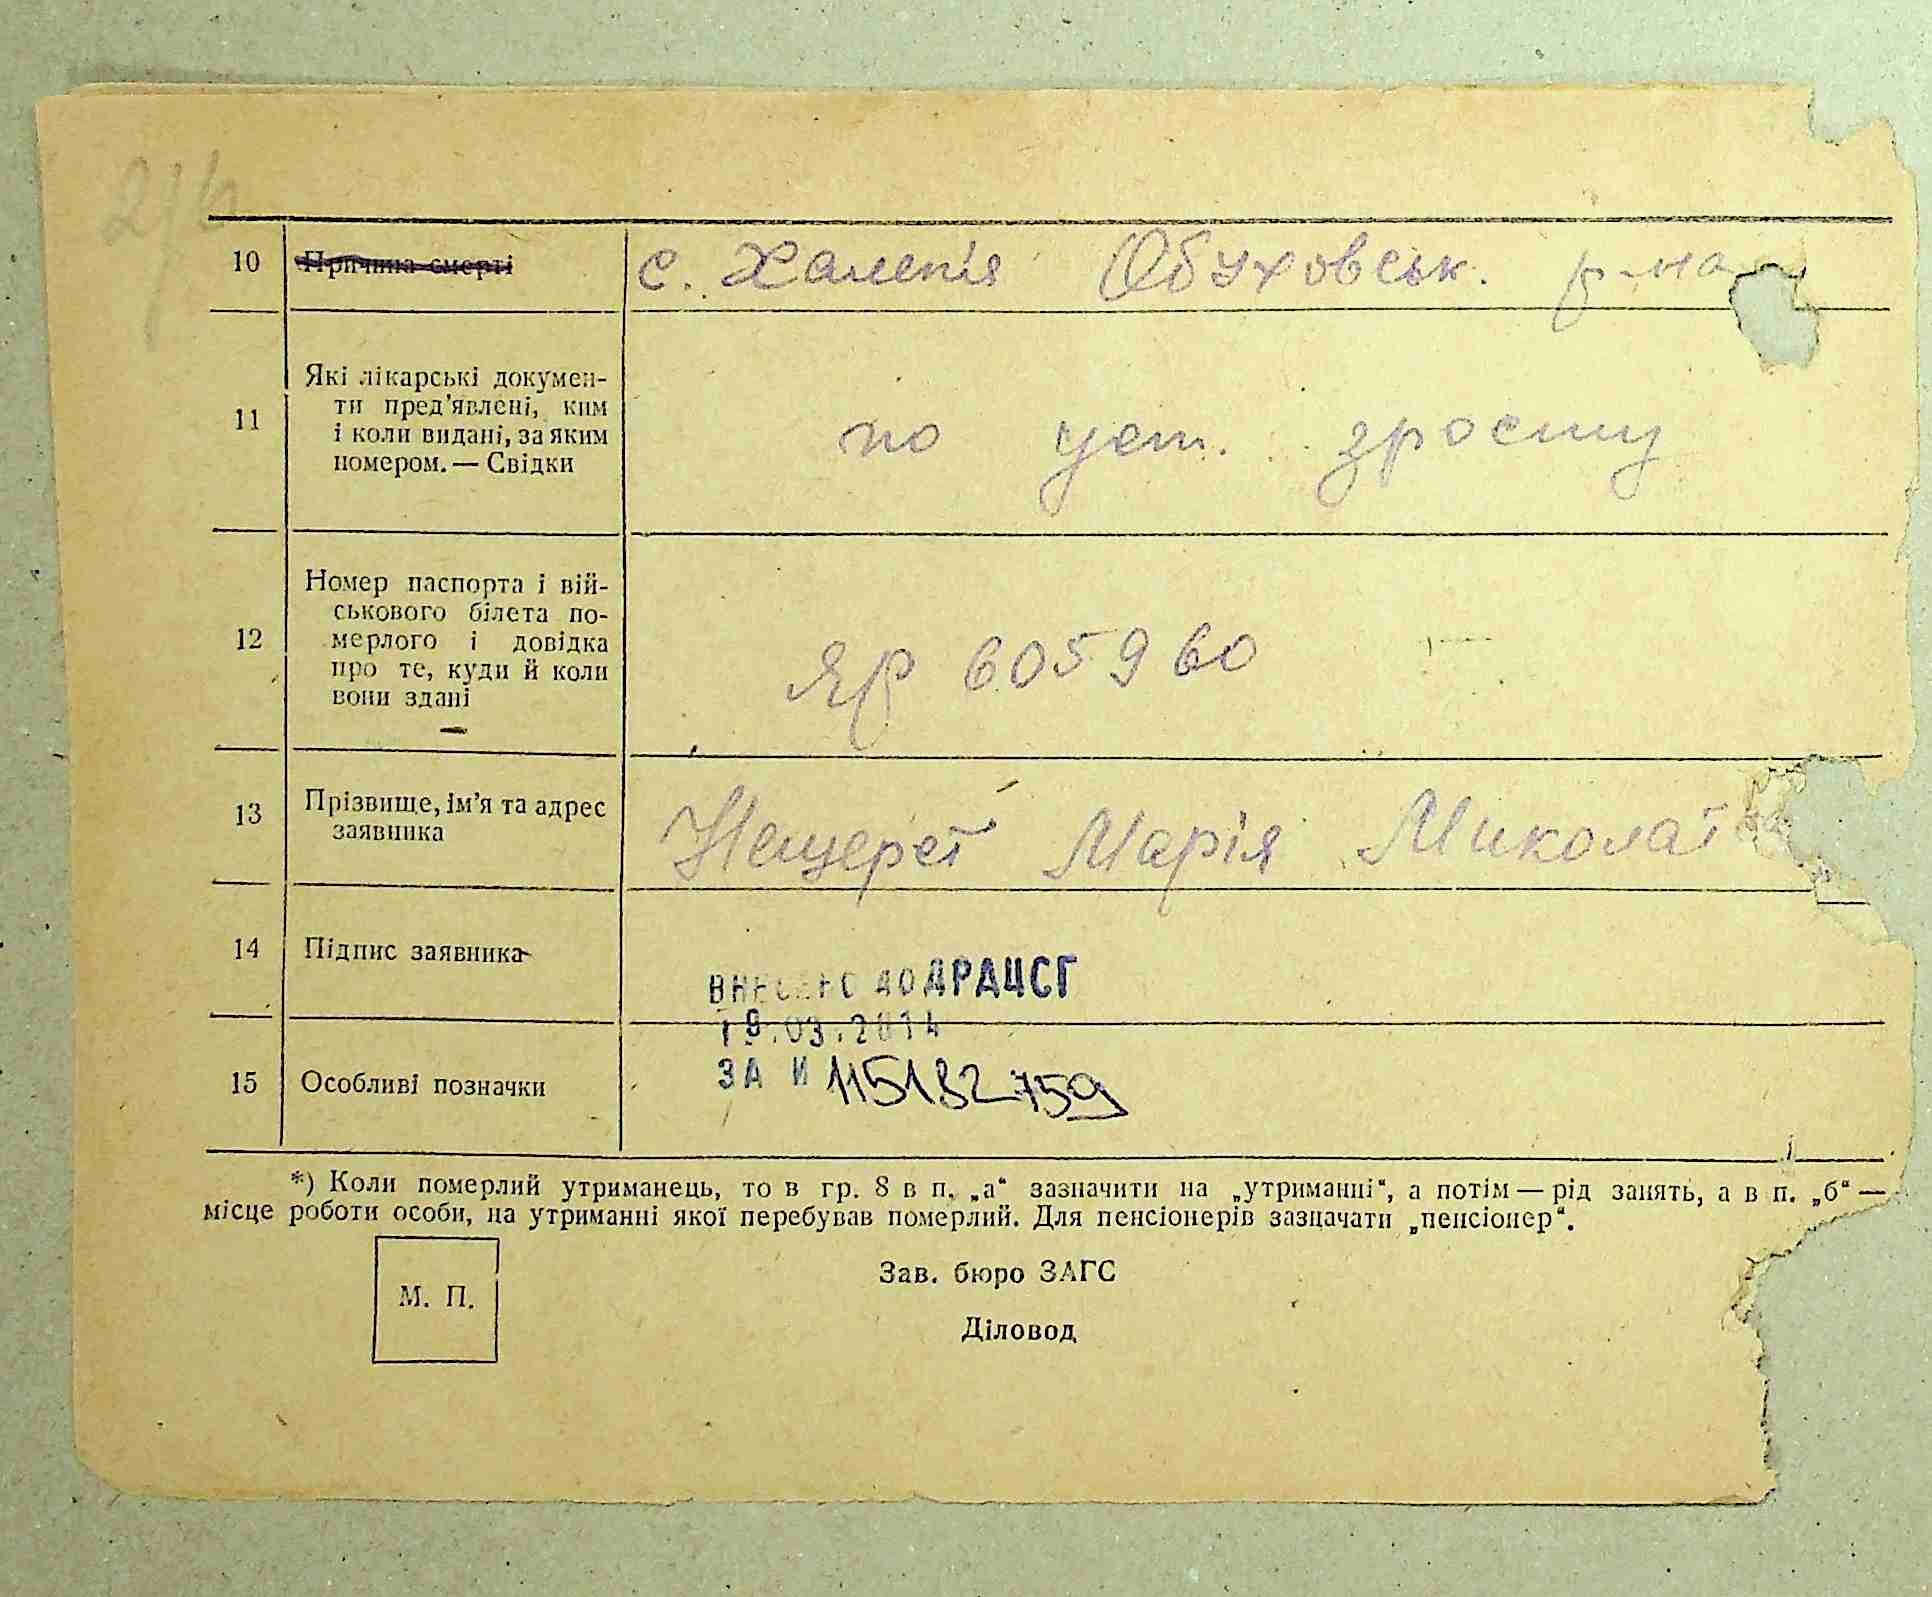 10 Причина смерті с. Халепія Обуховськ. р-на
11 Які лікарські докумен-
ти пред’явлені, ким
і коли видані, за яким
номером. — Свідки
по уст. зросту
12 Номер паспорта і вій-
ськового білета по-
мерлого і довідка
про те, куди й коли
вони здані
ЯР 605960
13 Прізвище, ім’я та адрес
заявника
Нещерет Марія
14 Підпис заявника
ВНЕСЕНО ДО ДРАЦСГ
19.03.2014
15 Особливі позначки
ЗА И 115182759
*) Коли померлий утриманець, то в гр. 8 в п. „а“ зазначити на „утриманні“, а потім — рід занять, а в п. „б“ —
місце роботи особи, на утриманні якої перебував померлий. Для пенсіонерів зазначати „пенсіонер“.
М. П.
Зав. бюро ЗАГС
Діловод